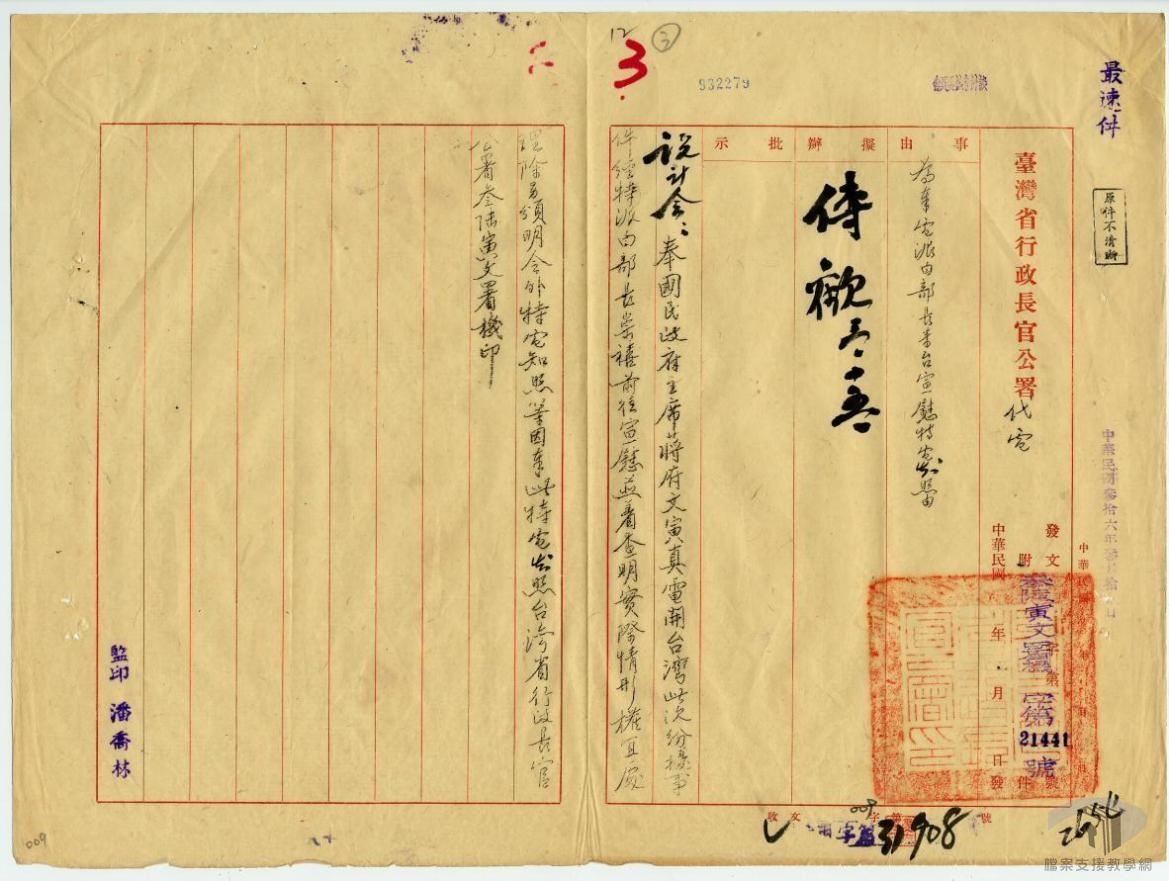 最速件
原件不清晰
臺灣省行政長官公署代電
事由
擬辦
批示
為奉電派白部長來台宣慰特電知照由
發文
附件
中華民國 年 月 日發
叁陸寅文署機字第21441號
932279
3
12
③
設計會：奉國民政府主席蔣府文寅真電開台灣此次紛擾事
件經特派白部長崇禧前往宣慰並着查明實際情形權宜處
理除另頒明令外特電知照等因奉此特電知照台湾省行政長官
公署叁陸寅文署機印
監印 潘喬林
收文 字第 號
31908
009
009
檔案支援教學網